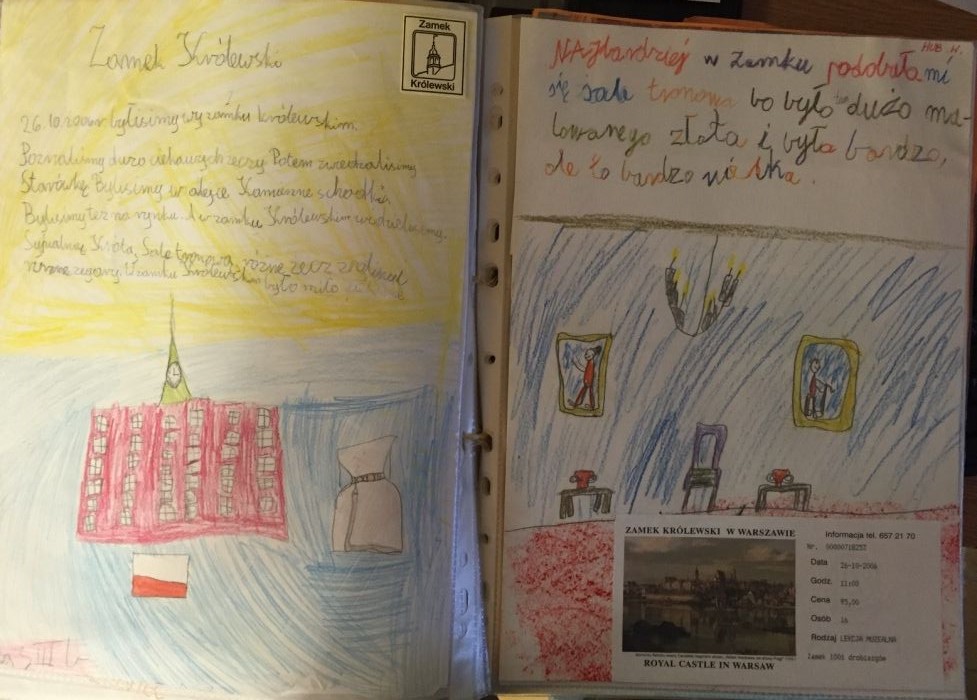 Zamek Królewski
Zamek
Królewski
26.10.2006r byliśmy wy zamku królewskim.
Poznaliśmy dużo ciekawych rzeczy Potem zwiedzaliśmy
Starówkę Byliśmy w alejce Kamienne schodki
Byliśmy też na rynku. A w zamku Królewskim widzieliśmy.
Sypialnię Króla, Sale tronową, różne
różne zegary. W zamku Królewskim było miło
III
HUB. W.
NAjbardziej w zamku podobała mi
się sala tronowa bo było dużo ma-
lowanego złota i była bardzo,
ale to bardzo
ZAMEK KRÓLEWSKI W WARSZAWIE
ROYAL CASTLE IN WARSAW
Informacja tel. 657 21 70
Nr. 00000718253
Data 26-10-2006
Godz. 11:00
Cena 85,00
Osób 16
Rodzaj LEKCJA MUZEALNA
Zamek 1000 drobiazgów